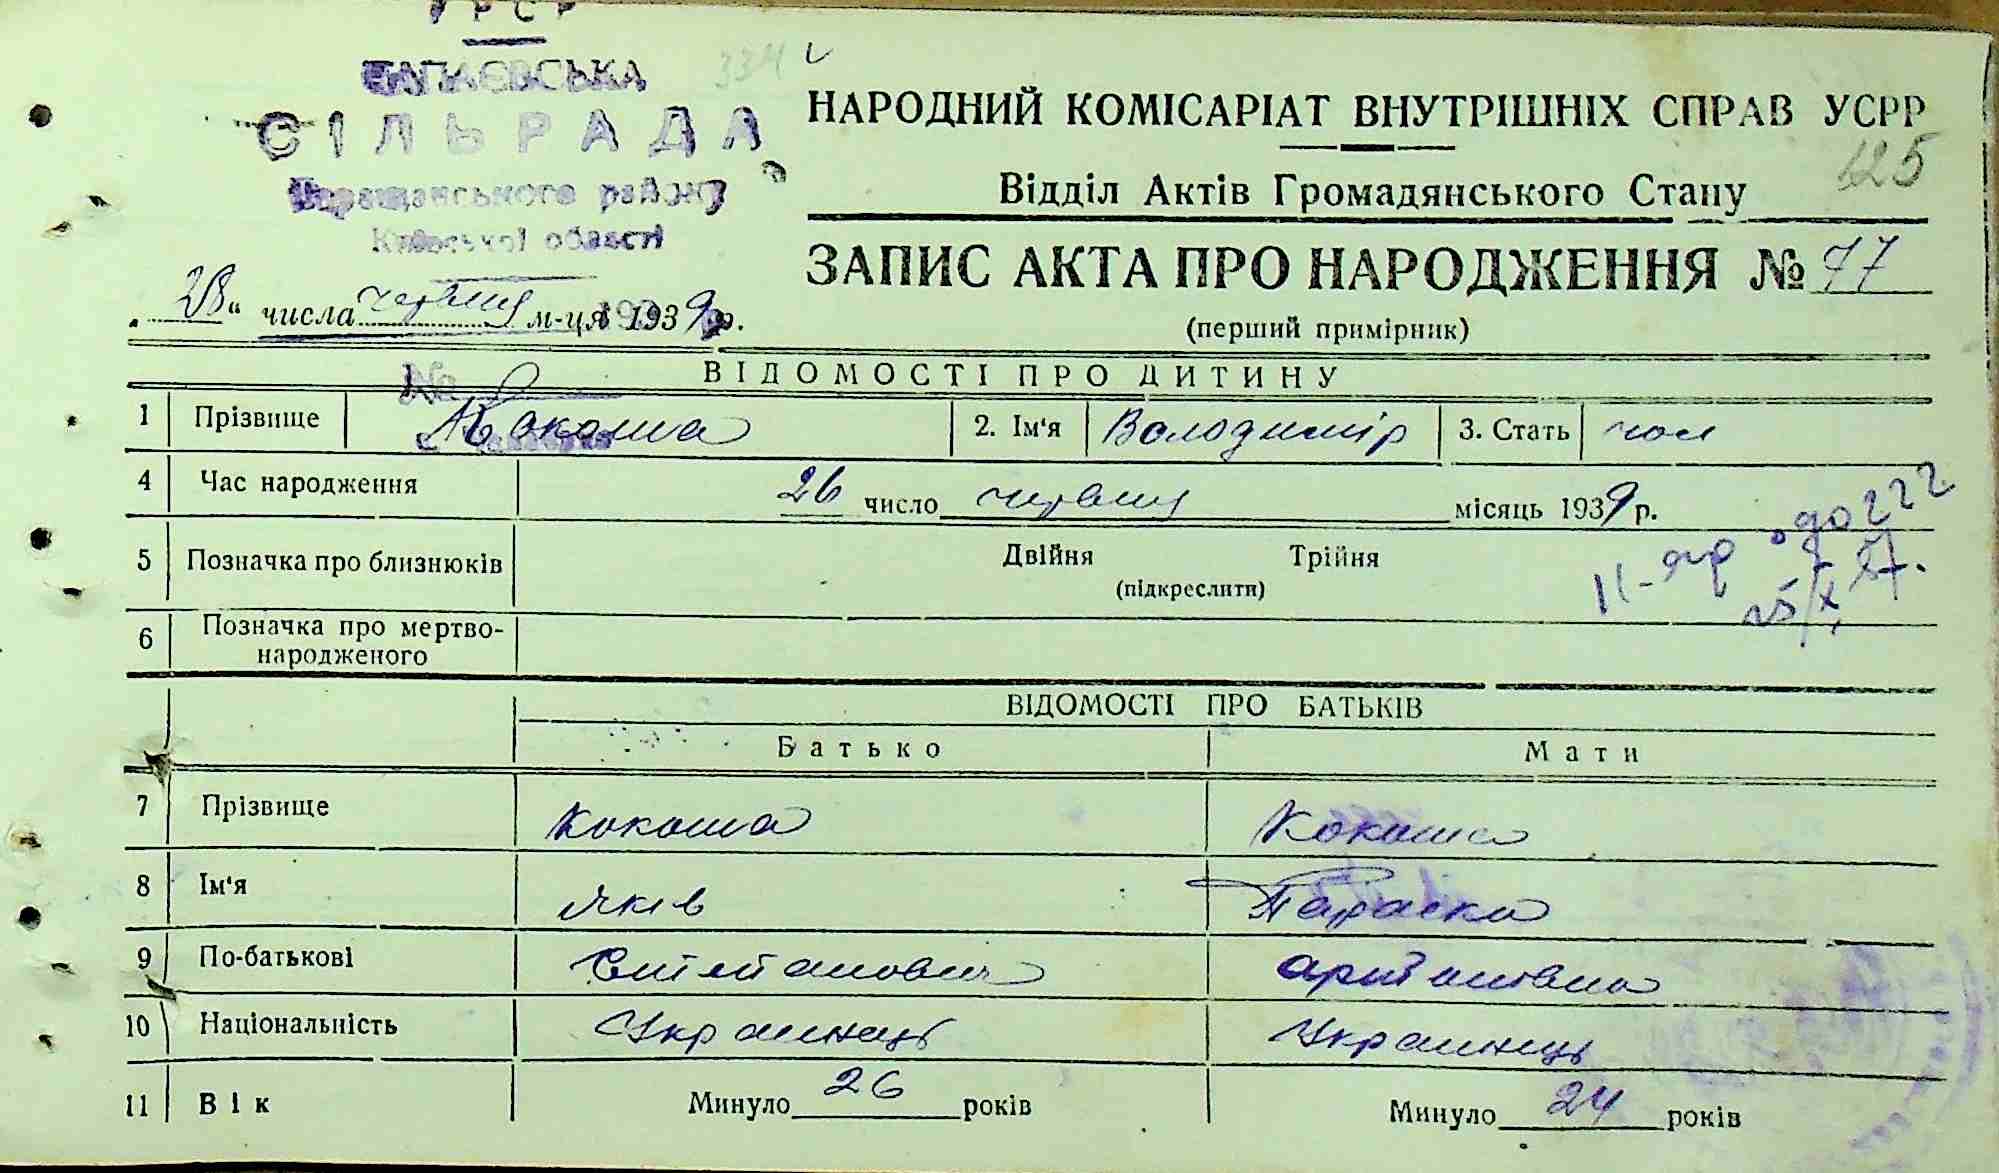 УРСР
ЧАПАЄВСЬКА 334
СІЛЬРАДА
Таращанського району
Київської області
НАРОДНИЙ КОМІСАРІАТ ВНУТРІШНІХ СПРАВ УСРР
125
Відділ Актів Громадянського Стану
ЗАПИС АКТА ПРО НАРОДЖЕННЯ № 77
(перший примірник)
„28“ числа червня м-ця 1939 р.
№
ВІДОМОСТІ ПРО ДИТИНУ
1 Прізвище Кокоша 2. Ім'я Володимір 3. Стать чол
4 Час народження 26 число червня місяць 1939 р.
5 Позначка про близнюків Двійня Трійня
(підкреслити)
6 Позначка про мертво-
народженого
ВІДОМОСТІ ПРО БАТЬКІВ
Батько Мати
7 Прізвище Кокоша Кокоша
8 Ім'я Яків Параска
9 По-батькові Степанович
10 Національність Українець Українець
11 Вік Минуло 26 років Минуло 24 років